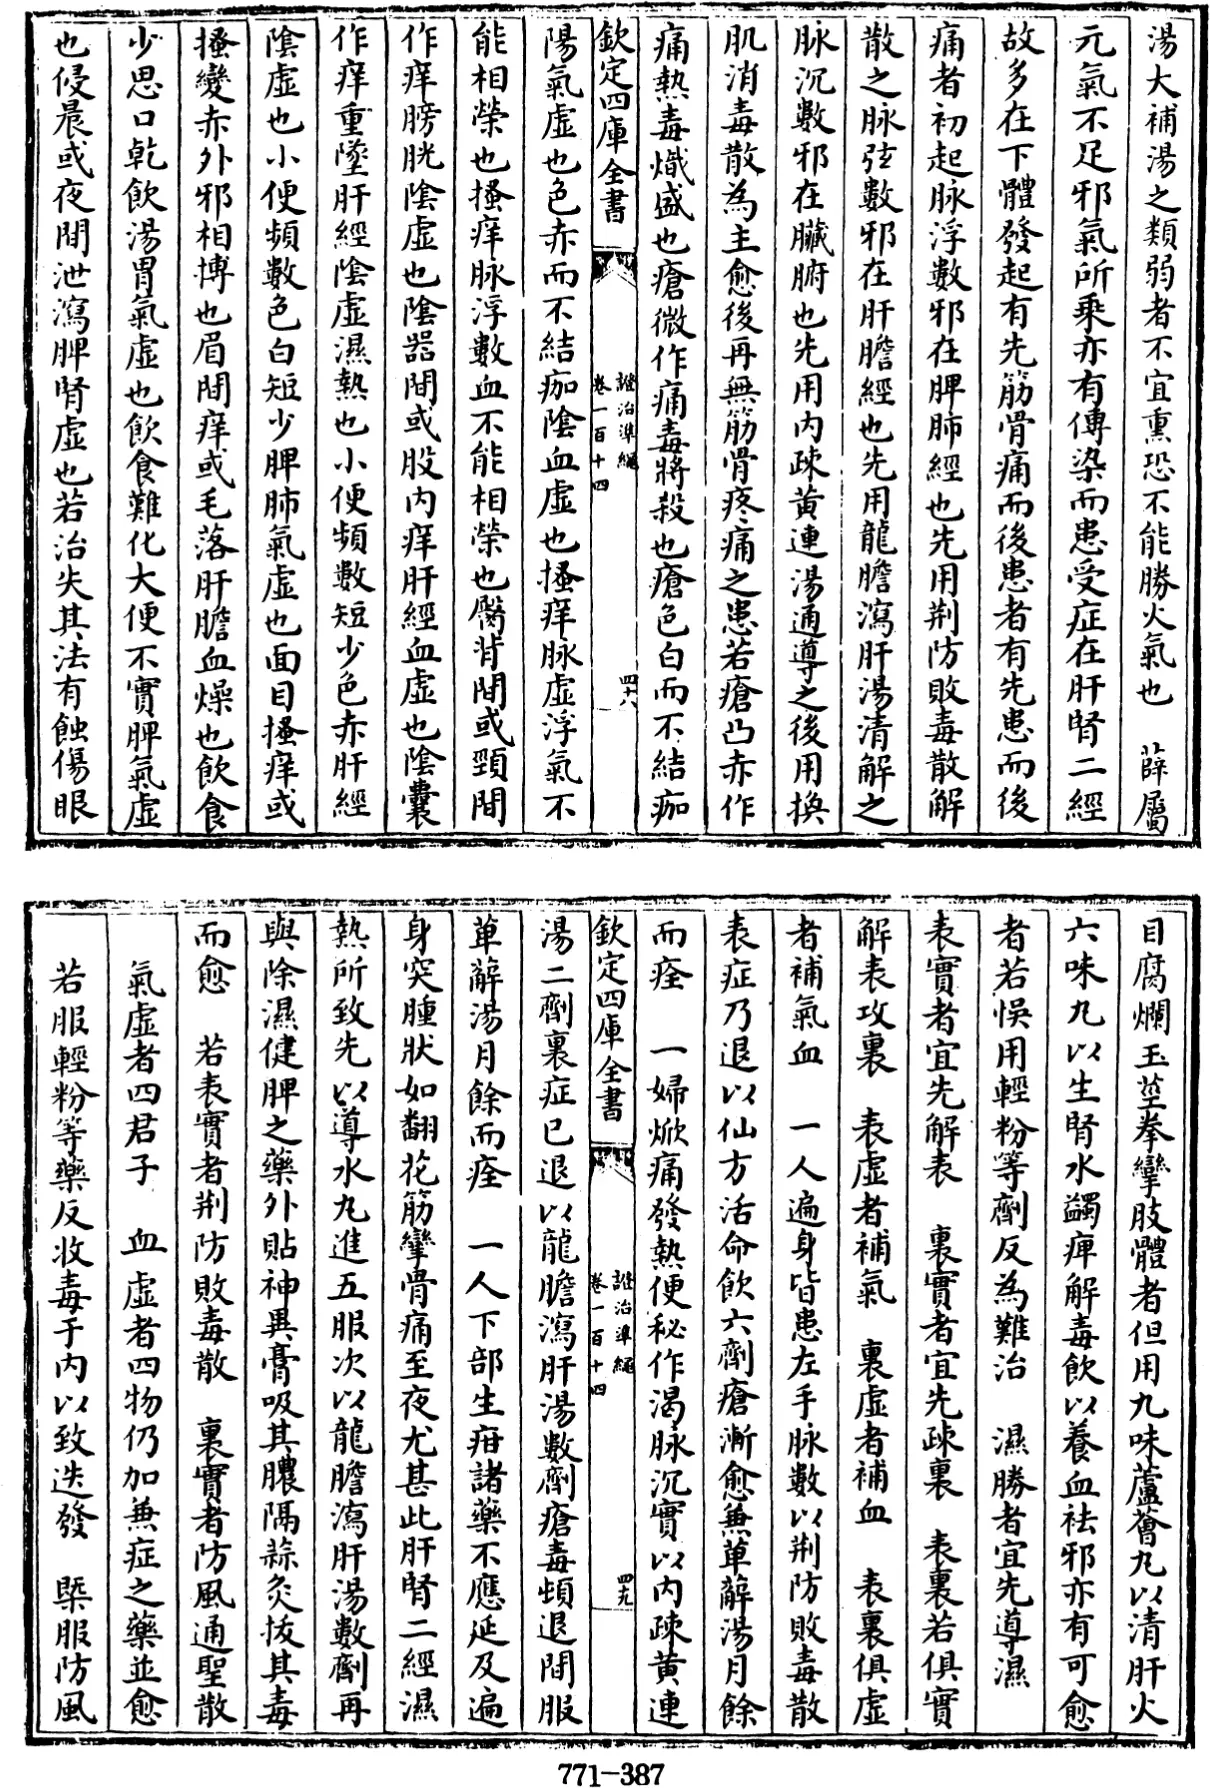 湯大補湯之類弱者不宜熏恐不能勝火氣也　薛屬
元氣不足邪氣所乗亦有傳染而患受症在肝腎二經
故多在下體發起有先筋骨痛而後患者有先患而後
痛者初起脉浮數邪在脾肺經也先用荆防敗毒散解
散之脉弦數邪在肝膽經也先用龍膽瀉肝湯清解之
脉沉數邪在臟腑也先用内疎黄連湯通導之後用換
肌消毒散為主愈後再無筋骨疼痛之患若瘡凸赤作
痛熱毒熾盛也瘡微作痛毒將殺也瘡色白而不結痂
欽定四庫全書
證治準繩
卷一百十四
四六
陽氣虛也色赤而不結痂陰血虛也搔痒脉虛浮氣不
能相榮也搔痒脉浮數血不能相榮也臀背間或頸間
作痒膀胱陰虛也陰器間或股内痒肝經血虛也陰囊
作痒重墜肝經陰虛濕熱也小便頻數短少色赤肝經
陰虛也小便頻數色白短少脾肺氣虛也面目搔痒或
搔變赤外邪相搏也眉間痒或毛落肝膽血燥也飲食
少思口乾飲湯胃氣虛也飲食難化大便不實脾氣虛
也侵晨或夜間泄瀉脾腎虛也若治失其法有蝕傷眼
目腐爛玉莖拳攣肢體者但用九味蘆薈丸以清肝火
六味丸以生腎水蠲痺解毒飲以養血祛邪亦有可愈
者若悞用輕粉等劑反為難治　濕勝者宜先導濕
表實者宜先解表　裏實者宜先疎裏　表裏若俱實
解表攻裏　表虛者補氣　裏虛者補血　表裏俱虛
者補氣血　一人遍身皆患左手脉數以荆防敗毒散
表症乃退以仙方活命飲六劑瘡漸愈兼萆薢湯月餘
而痊　一婦焮痛發熱便秘作渴脉沉實以内疎黄連
欽定四庫全書
證治準繩
卷一百十四
四九
湯二劑裏症已退以龍膽瀉肝湯數劑瘡毒頓退間服
萆薢湯月餘而痊　一人下部生疳諸藥不應延及遍
身突腫狀如翻花筋攣骨痛至夜尤甚此肝腎二經濕
熱所致先以導水丸進五服次以龍膽瀉肝湯數劑再
與除濕健脾之藥外貼神異膏吸其膿隔蒜灸拔其毒
而愈　若表實者荆防敗毒散　裏實者防風通聖散
氣虛者四君子　血虛者四物仍加兼症之藥並愈
若服輕粉等藥反收毒于内以致迭發　槩服防風
771-387